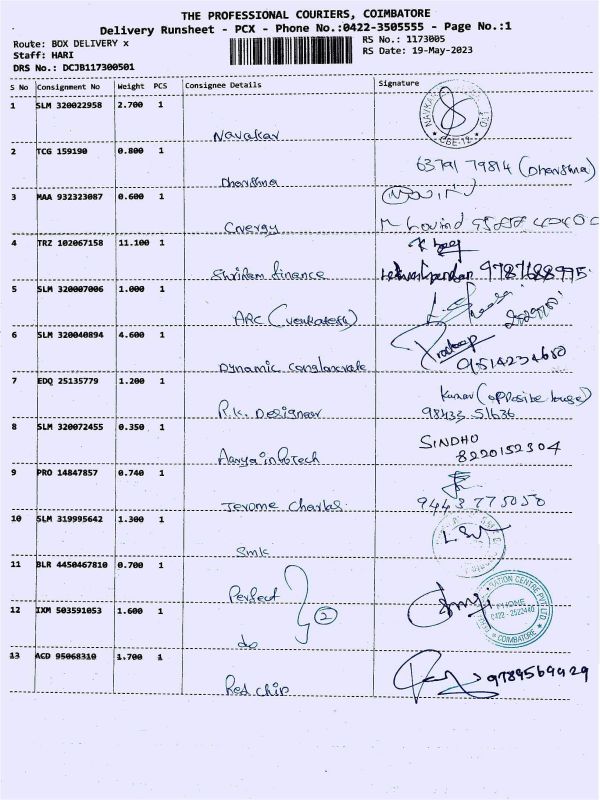 THE PROFESSIONAL COURIERS, COIMBATORE
Delivery Runsheet - PCX - Phone No.:0422-3505555 - Page No.:1
Route: BOX DELIVERY x
RS No.: 1173005
Staff: HARI
RS Date: 19-May-2023
DRS No.: DCJB117300501
S No Consignment No Weight PCS Consignee Details Signature
1 SLM 320022958 2.700 1
Navakar
CBE-12
2 TCG 159190 0.800 1
Dharshna
63791 79814 (Dharshna)
3 MAA 932323087 0.600 1
Cnergy
4 TRZ 102067158 11.100 1
Shriram finance
9787688995
5 SLM 320007006 1.000 1
ARC (Venkatesh)
6 SLM 320040894 4.600 1
Dynamic conglomerate
Pradeep
9514234680
7 EDQ 25135779 1.200 1
R.K. Designer
Kumar (opposite house)
98433 51636
8 SLM 320072455 0.350 1
Aarya infotech
SINDHU
8220152304
9 PRO 14847857 0.740 1
Jerome Charles
9443775050
10 SLM 319995642 1.300 1
Smk
11 BLR 4450467810 0.700 1
Perfect
2
12 IXM 503591053 1.600 1
do
PHONE
0422-2522440
COIMBATORE
13 ACD 95068310 1.700 1
Red chip
9789569929